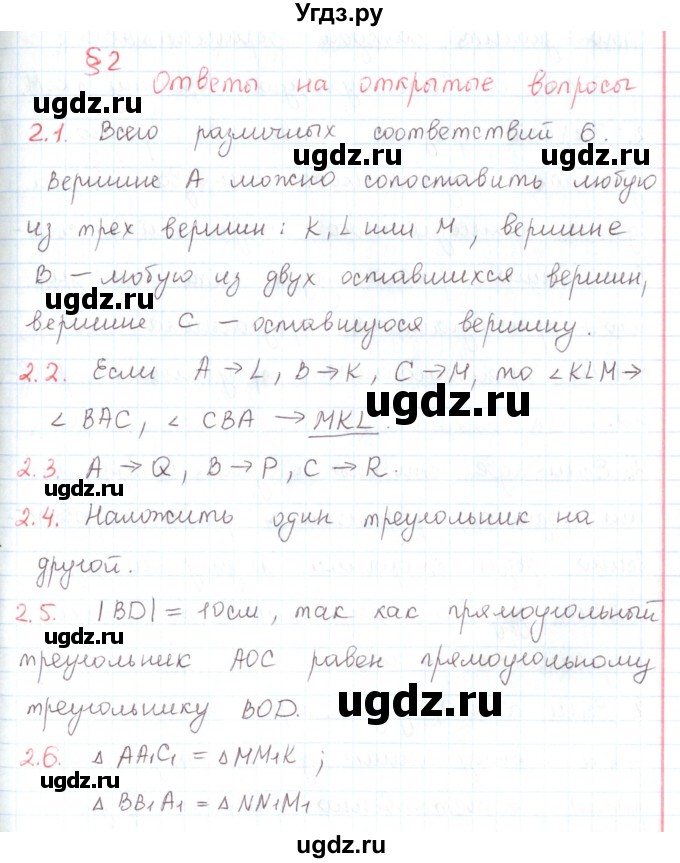 Угдз.ру
§2
Ответы на открытые вопросы
2.1. Всего различных соответствий 6.
Вершине A можно сопоставить любую
из трех вершин: K, L или M, вершине
B – любую из двух оставшихся вершин,
вершине C – оставшуюся вершину.
2.2. Если A → L, B → K, C → M, то ∠KLM →
∠ BAC, ∠ CBA → MKL.
2.3. A → Q, B → P, C → R.
2.4. Наложить один треугольник на
другой.
2.5. |BD| = 10 см, так как прямоугольный
треугольник AOC равен прямоугольному
треугольнику BOD.
2.6. △ AA₁C₁ = △ MM₁K;
△ BB₁A₁ = △ NN₁M₁
ugdz.ru
ugdz.ru
ugdz.ru
ugdz.ru
ugdz.ru
ugdz.ru
ugdz.ru
ugdz.ru
ugdz.ru
ugdz.ru
ugdz.ru